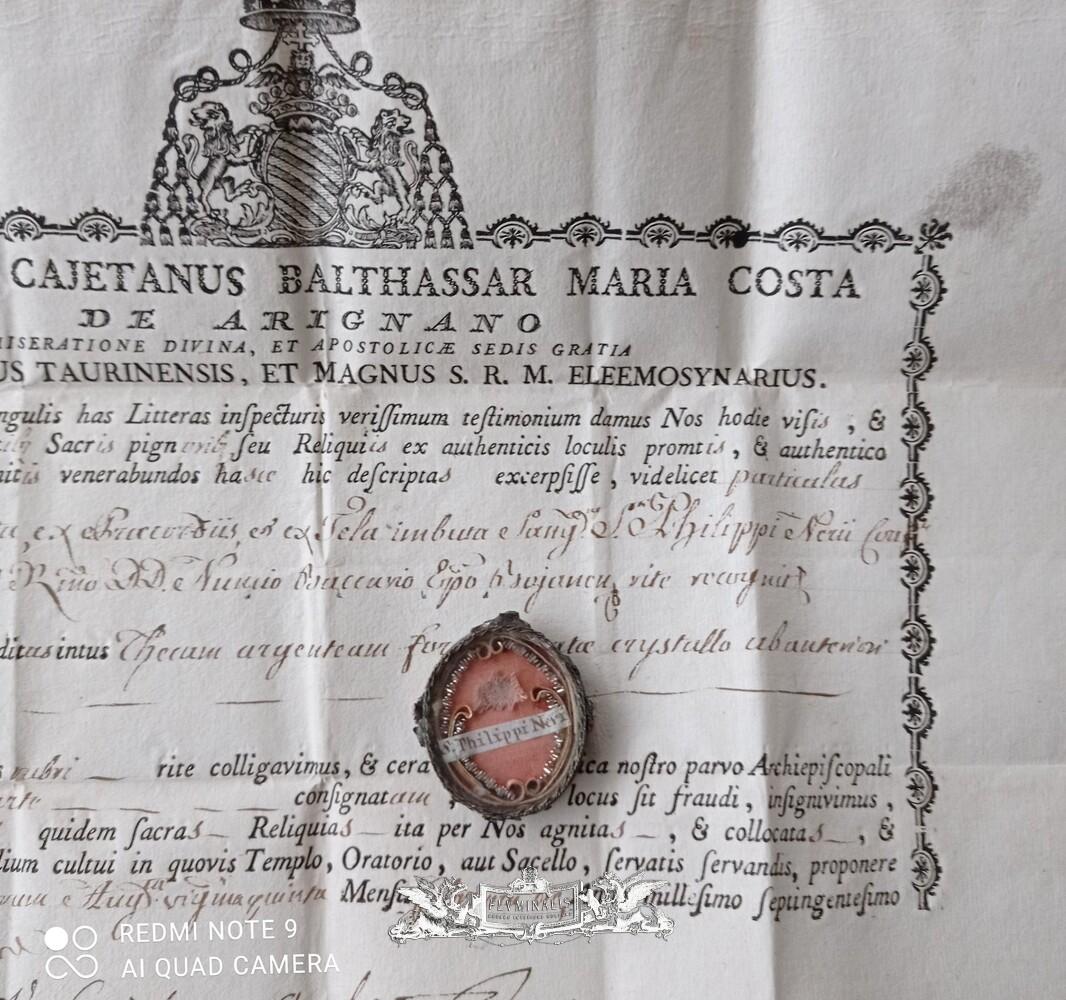 CAJETANUS BALTHASSAR MARIA COSTA
DE ARIGNANO
ISERATIONE DIVINA, ET APOSTOLICÆ SEDIS GRATIA
US TAURINENSIS, ET MAGNUS S. R. M. ELEEMOSYNARIUS.
ngulis has Litteras inſpecturis veriſſimum teſtimonium damus Nos hodie viſis, &
Sacris pign ſeu Reliquiis ex authenticis loculis promtis, & authentico
nitis venerabundos hasce hic deſcriptas excerpſiſſe, videlicet particulas
ex Præcordiis, et ex Tela imbuta e Sang. S. Philippi Nerii
rite recognit
ditas intus Thecam argenteam crystallo ab anteriori
S. Philippi Nerii
rubri rite colligavimus, & cera ca noſtro parvo Archiepiſcopali
conſignatam locus ſit fraudi, inſignivimus,
quidem ſacras Reliquias ita per Nos agnitas, & collocatas, &
lium cultui in quovis Templo, Oratorio, aut Sacello, ſervatis ſervandis, proponere
Menſi milleſimo ſeptingenteſimo
FLUMINALIS
REDMI NOTE 9
AI QUAD CAMERA